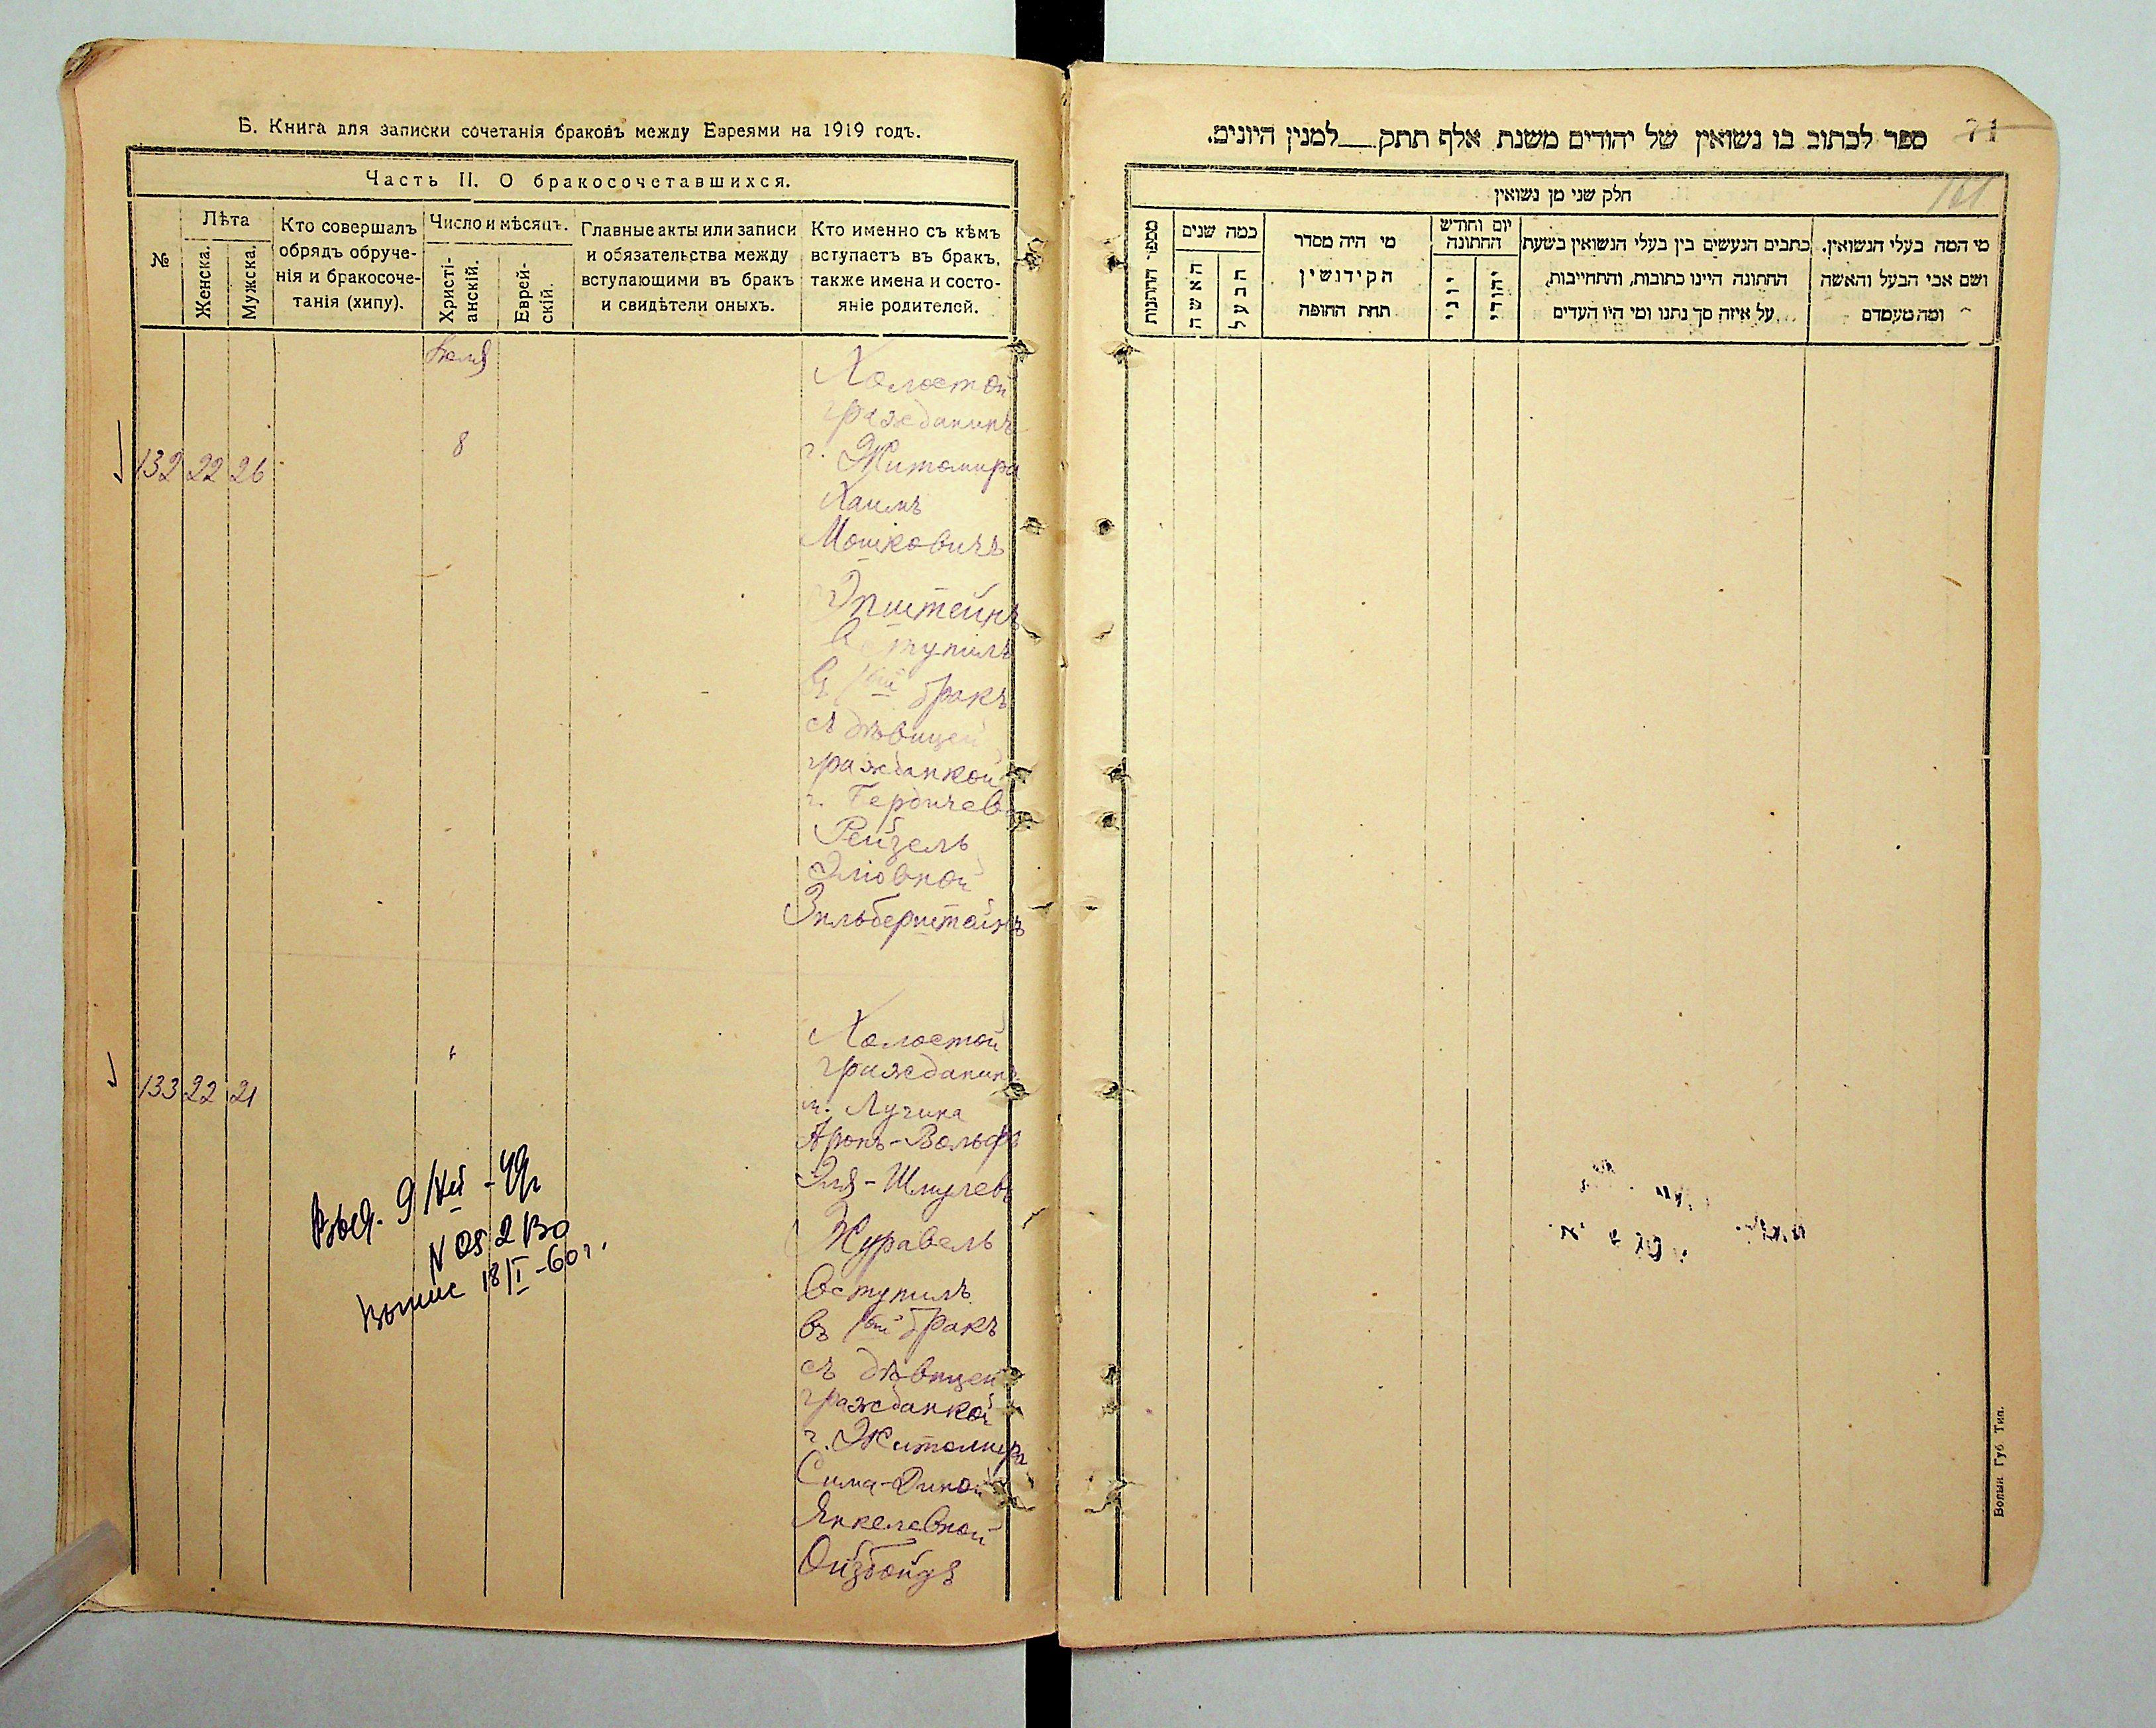 Б. Книга для записки сочетанія браковъ между Евреями на 1919 годъ.
Часть II. О бракосочетавшихся.
№
Лѣта
Женска.
Мужска.
Кто совершалъ
обрядъ обруче-
нія и бракосоче-
танія (хипу).
Число и мѣсяцъ.
Христі-
анскій.
Еврей-
скій.
Главные акты или записи
и обязательства между
вступающими въ бракъ
и свидѣтели оныхъ.
Кто именно съ кѣмъ
вступаетъ въ бракъ,
также имена и состо-
яніе родителей.
132 22 26
8
Холостой
гражданинъ
г. Житомира
Хаимъ
Мошковичъ
Эпштейнъ
Вступилъ
въ 1ый бракъ
съ дѣвицей
гражданкой
г. Бердичев
Рейзель
Эліовной
Зильберштейнъ
133 22 21
Холостой
гражданинъ
м. Лучина
Аронъ-Вольфъ
Эля-Шмулев
Журавель
Вступилъ
въ 1ый бракъ
съ дѣвицей
гражданкой
г. Житомира
Сима-Диной
Янкелевной
Ойзбойдъ
18/I-60г.
ספר לכתוב בו נשואין של יהודים משנת אלף תתק__למנין היונים.
71
161
חלק שני מן נשואין
מספר החתנות
כמה שנים
האשה
הבעל
מי היה מסדר
הקידושין
תחת החופה
יום וחודש
החתונה
יוני
יהודי
כתבים הנעשים בין בעלי הנשואין בשעת
החתונה היינו כתובות, והתחייבות,
על איזה סך נתנו ומי היו העדים
מי המה בעלי הנשואין.
ושם אבי הבעל והאשה
ומה מעמדם
Волын Губ Тип.